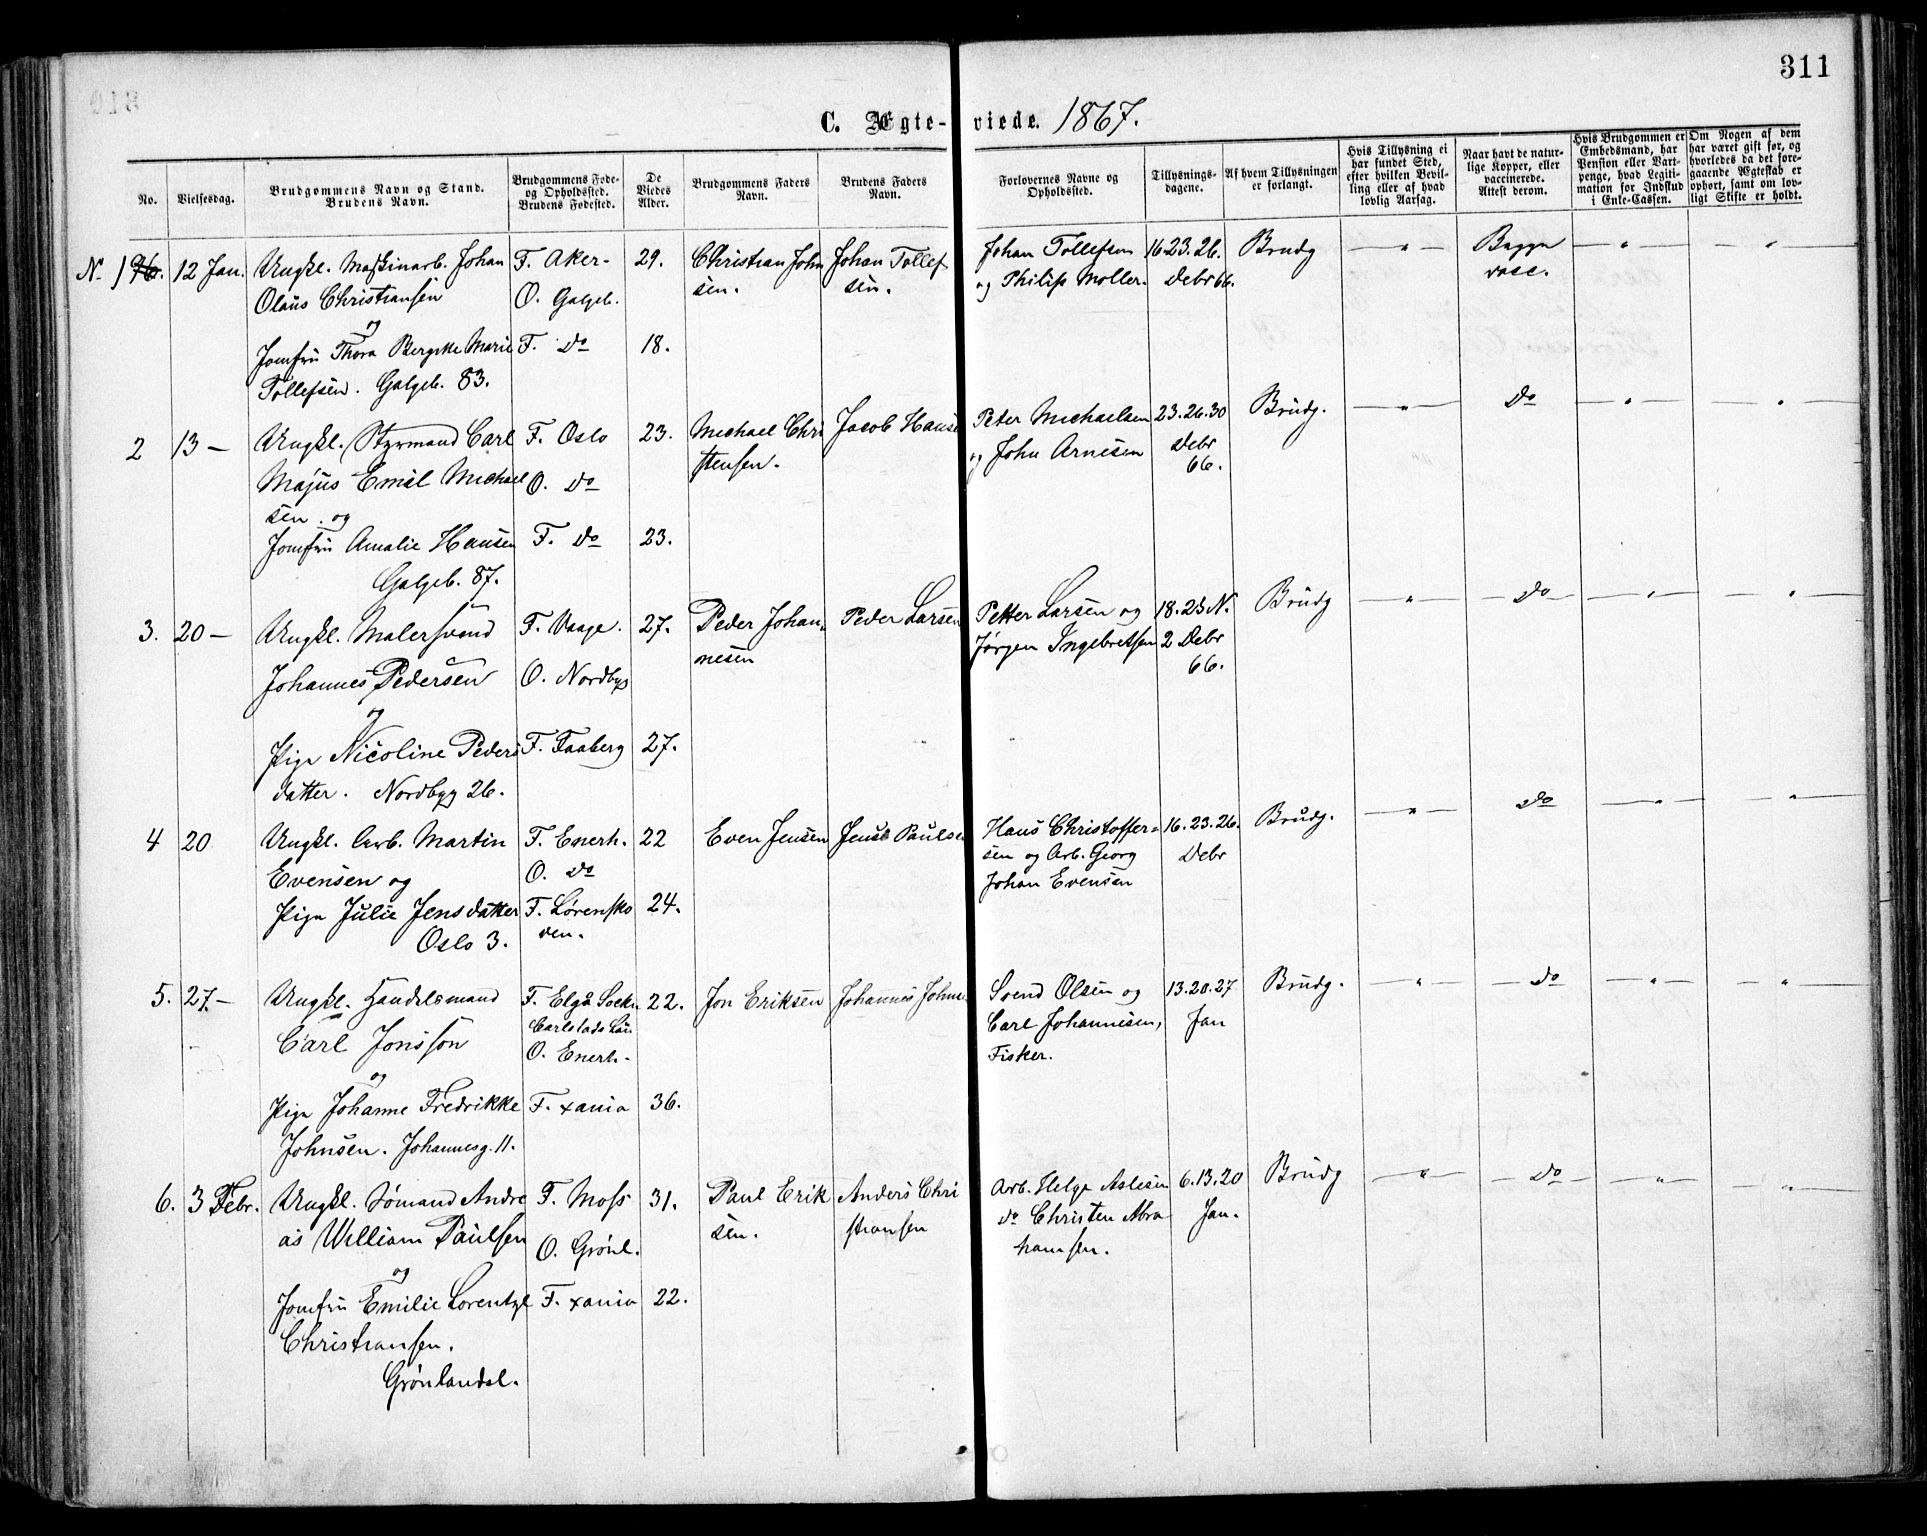 311
C. Ægte-viede. 1867.
No.
Vielsesdag.
Brudgommens Navn og Stand.
Brudens Navn.
Brudgommens Føde-
og Opholdssted.
Brudens Fødested.
De
Viedes
Alder.
Brudgommens Faders
Navn.
Brudens Faders
Navn.
Forlovernes Navne og
Opholdssted.
Tillysnings-
dagene.
Af hvem Tillysningen
er forlangt.
Hvis Tillysning ei
har fundet Sted,
efter hvilken Bevil-
ling eller af hvad
lovlig Aarsag.
Naar havt de natur-
lige Kopper, eller
vaccinerede.
Attest derom.
Hvis Brudgommen er
Embedsmand, har
Pension eller Vart-
penge, hvad Legiti-
mation for Indskud
i Enke-Cassen.
Om Nogen af dem
har været gift før, og
hvorledes da det fore-
gaaende Ægteskab er
ophørt, samt om lov-
ligt Skifte er holdt.
N. 1 12 Jan. Ungkl. Maskinarb. Johan F. Aker- 29. Christian John Johan Tollef Johan Tollefsen 16.23.26. Brudg " Begge " "
Olaus Christiansen O. Galgeb. sen. sen. og Philip Møller. Debr 66. vacc.
og
Jomfru Thora Bergitte Marie F. do 18.
Tollefsen. Galgeb. 83.
2 13 — Ungkl. Styrmand Carl F. Oslo 23. Michael Chri Jacob Hanse Peter Michaelsen 23.26.30 Brudg. " do " "
Majus Emil Michael O. do stensen. og John Arnesen Debr
sen. og 66.
Jomfru Amalie Hansen F. do 23.
Galgeb. 87.
3. 20 — Ungkl. Malersvend F. Vaage. 27. Peder Johan- Peder Larsen Petter Larsen og 18.25 N. Brudg " do " "
Johannes Pedersen O. Nordbyg nesen Jørgen Ingebretsen 2 Debr
og 66.
Pige Nicoline Peders F. Faaberg 27.
datter. Nordbyg 26.
4 20 Ungkl. Arb. Martin F. Enerh. 22 Even Jensen Jens Paulse Hans Christoffer- 16.23.26. Brudg. " do " "
Evensen og O. do sen og Arb. Georg Debr
Pige Julie Jensdatter F. Lørensko 24. Johan Evensen
Oslo 3. ven.
5. 27. — Ungkl. Handelsmand F. Elgå Sockn 22. Jon Eriksen Johannes Johne Svend Olsen og 13.20.27 Brudg. " do " "
Carl Jonsson Carlstads Län Carl Johannesen, Jan
og O. Enerh. Fisker.
Pige Johanne Fredrikke F. xania 36.
Johnsen. Johannesg. 11.
6. 3 Febr. Ungkl. Sømand Andre F. Moss 31. Paul Erik Anders Chri Arb. Helge Aslesen 6.13.20 Brudg " do " "
as William Paulsen O. Grønl. sen. stiansen do Christen Abra Jan.
og hamsen.
Jomfru Emilie Lorentze F. xania 22.
Christiansen.
Grønlandsl.